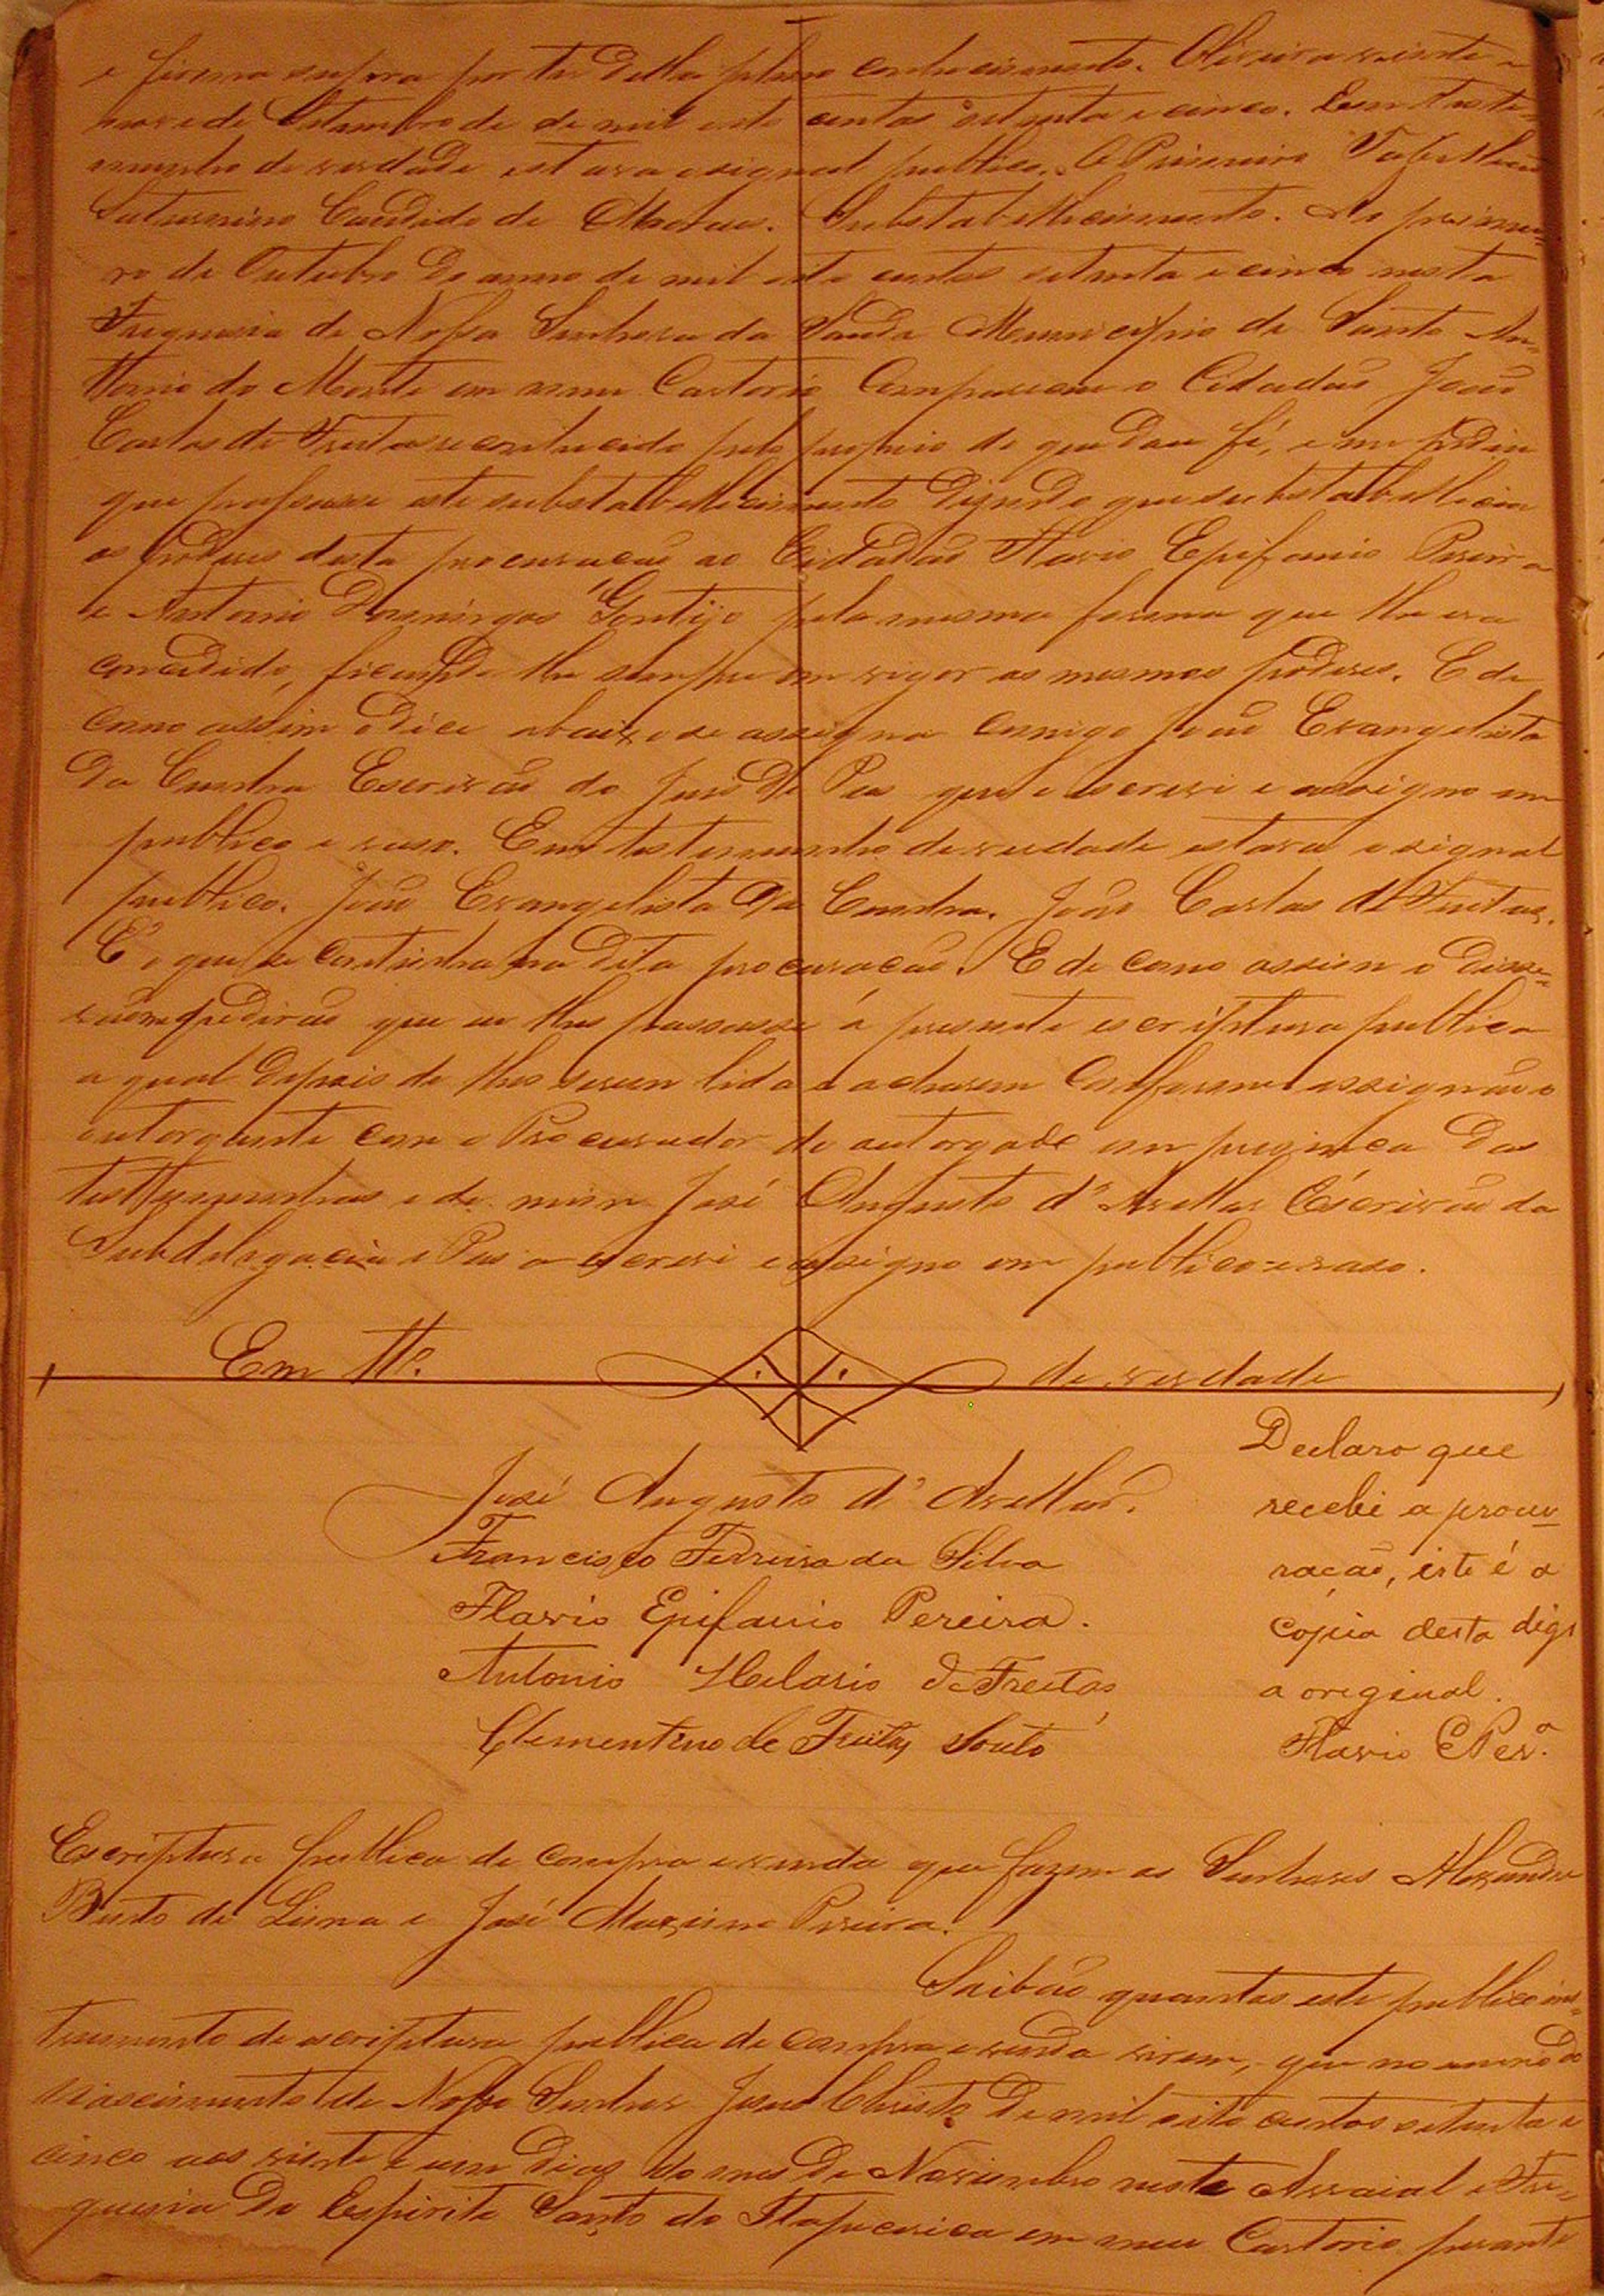 e firma supra por ter della pleno conhecimento. Oliveira vinte e
nove de Setembro de de mil oito centos setenta e cinco. Em teste=
munho de verdade estava o signal publico. O Primeiro Tabelliaõ
Saturnino Candido de Moraes. Substabellecimento. Ao primei=
ro de Outubro do anno de mil oito centos setenta e cinco nesta
Freguesia de Nossa Senhora da Saude Municipio de Santo An=
tonio do Monte em meu Cartorio Compareceu o Cidadaõ Joaõ
Carlos de Freitas reconhecido pelo proprio de que dou fé, e me pediu
que passasse este substabellecimento disendo que substabellecia
os poderes desta procuraçaõ ao Cidadaõ Flavio Epifanio Pereira
e Antonio Domingos Gontijo pela mesma forma que lhe era
concedido, ficando lhe sempre em vigor os mesmos poderes. E de
como assim o dice abaixo se assigna comigo Joaõ Evangelista
da Cunha Escrivaõ do Juis de Pas que o escrevi e assigno em
publico e raso. Em testemunho de verdade estava o signal
publico. Joaõ Evangelista da Cunha. Joaõ Carlos de Freitas.
E' o que se continha na dita procuraçaõ. E de como assim o disse=
raõ me pediraõ que eu lhes passasse a presente escriptura publica
a qual depois de lhes serem lida e acharem conforme assignaõ o
outorgante com o Procurador do outorgado em presinca das
testtemunhas e de mim José Augusto d'Avellar Escrivaõ da
Subdelegacia e Pas o escrevi e assigno em publico e raso.
Em tt.º de verdade
José Augusto d'Avellar.
Francisco Ferreira da Silva
Flavio Epifanio Pereira.
Antonio Hilario de Freitas
Clementino de Freitas Souto
Declaro que
recebi a procu
racaõ, iste é a
copia desta digo
a original.
Flavio E Per.ª
Escriptura publica de compra e venda que fazem os Senhores Alexandre
Bento de Lima e José Maximo Pereira.
Saibaõ quantos este publico ins=
trumento de escriptura publica de compra e venda virem, que no anno do
Nascimento de Nosso Senhor Jesus Christo de mil oito centos setenta e
cinco aos vinte e um dias do mes de Novembro neste Arraial e Fre=
guesia do Espirito Santo do Itapecerica em meu Cartorio perante